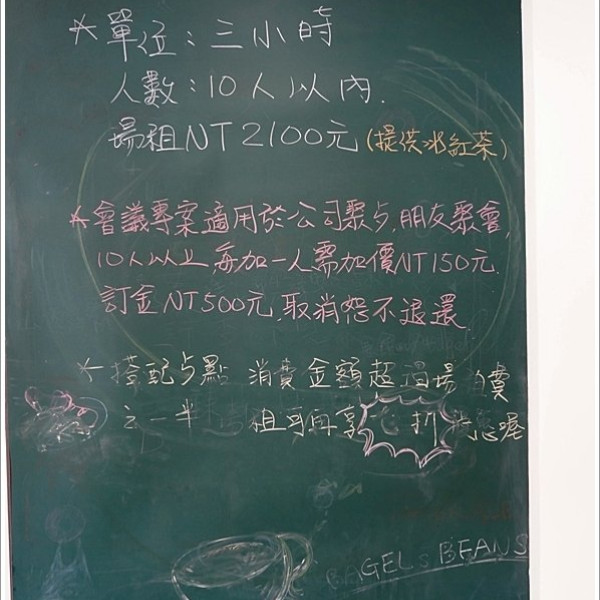 *單位：三小時
人數：10人以內.
場租NT2100元(提供冰紅茶)
*會議專案適用於公司聚点,朋友聚會,
10人以上每加一人需加價NT150元.
訂金NT500元,取消恕不退還.
*搭配点點 消費金額超過場 費
之一半 租可再享 折 喔
BAGELS BEANS